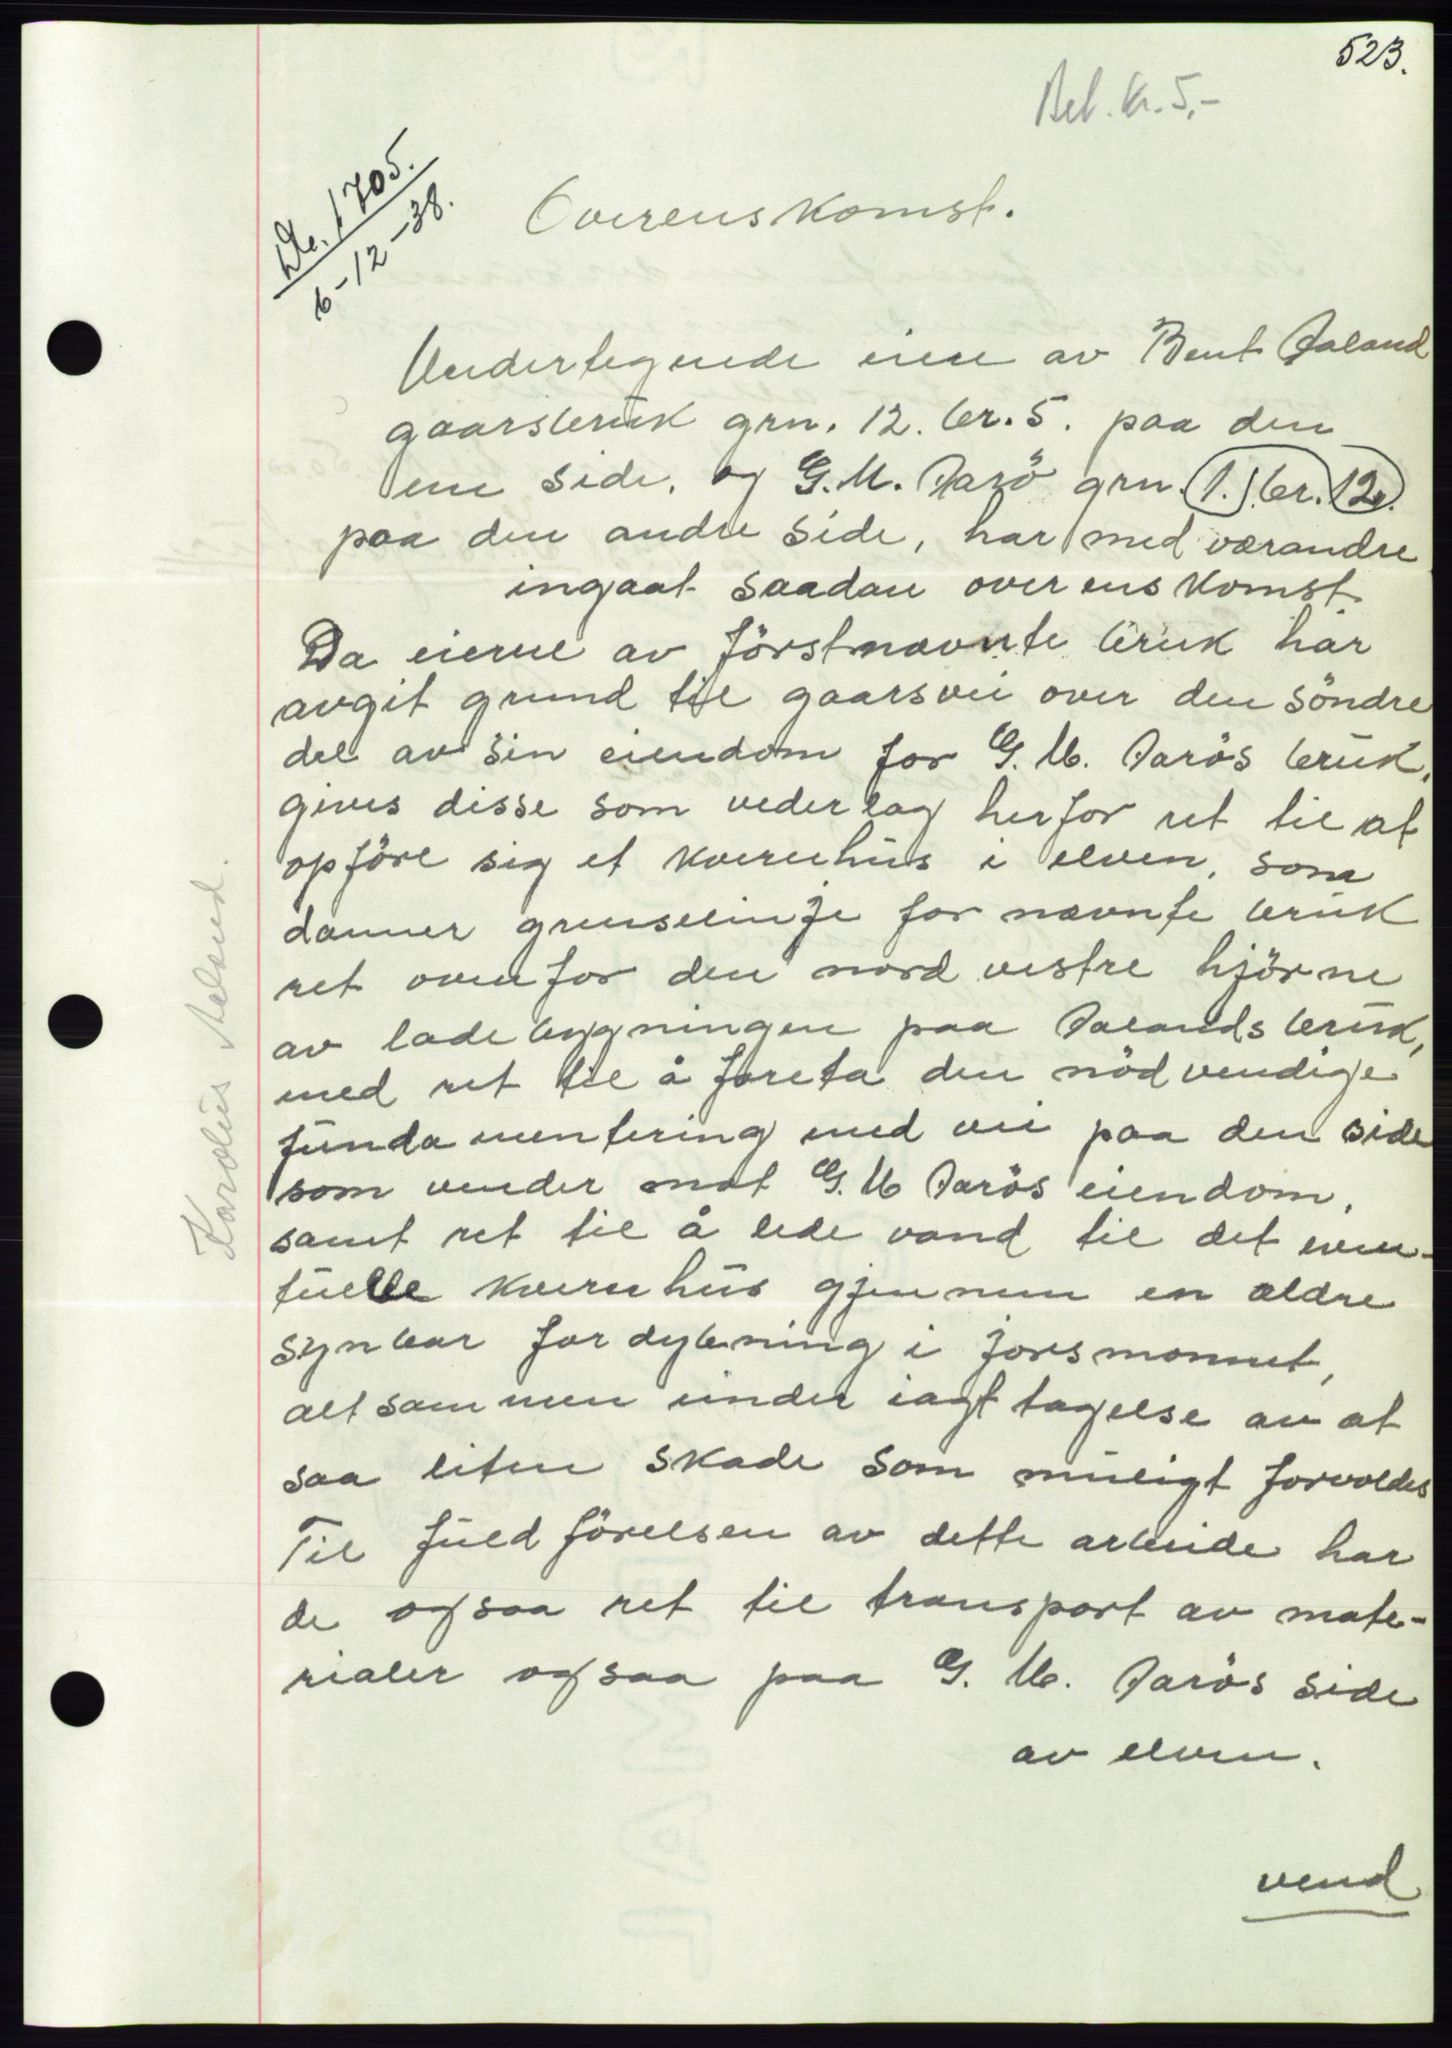 523.
Bet. kr. 5,-
De. 1705.
6-12-38.
Overenskomst.
Undertegnede eiere av Bent Aaland
gaarsbruk grn. 12. br. 5. paa den
ene side, og G. M. Aarö grn. 1. br. 12.
paa den andre side, har med værandre
ingaat saadan overenskomst.
Da eierne av förstnævnte bruk har
avgit grund til gaarsvei over den söndre
del av sin eiendom for G. M. Aarös bruk,
gives disse som vederlag herfor ret til at
opföre sig et kvernhus i elven, som
danner grenselinje for nævnte bruk
ret ovenfor den nord vestre hjörne
av ladebygningen paa Aalands bruk,
med ret til å foreta den nödvendige
fundamentering med vei paa den side
som vender mot G. M Aarös eiendom,
samt ret til å lede vand til det even-
tuelle kvernhus gjennem en ældre
synbar fordybning i jorsmonnet,
alt sammen under iagttagelse av at
saa liten skade som muligt forvoldes
Til fuldförelsen av dette arbeide har
de ogsaa ret til transport av mate-
rialer ogsaa paa G. M. Aarös side
av elven.
vend
Karolus Aaland.